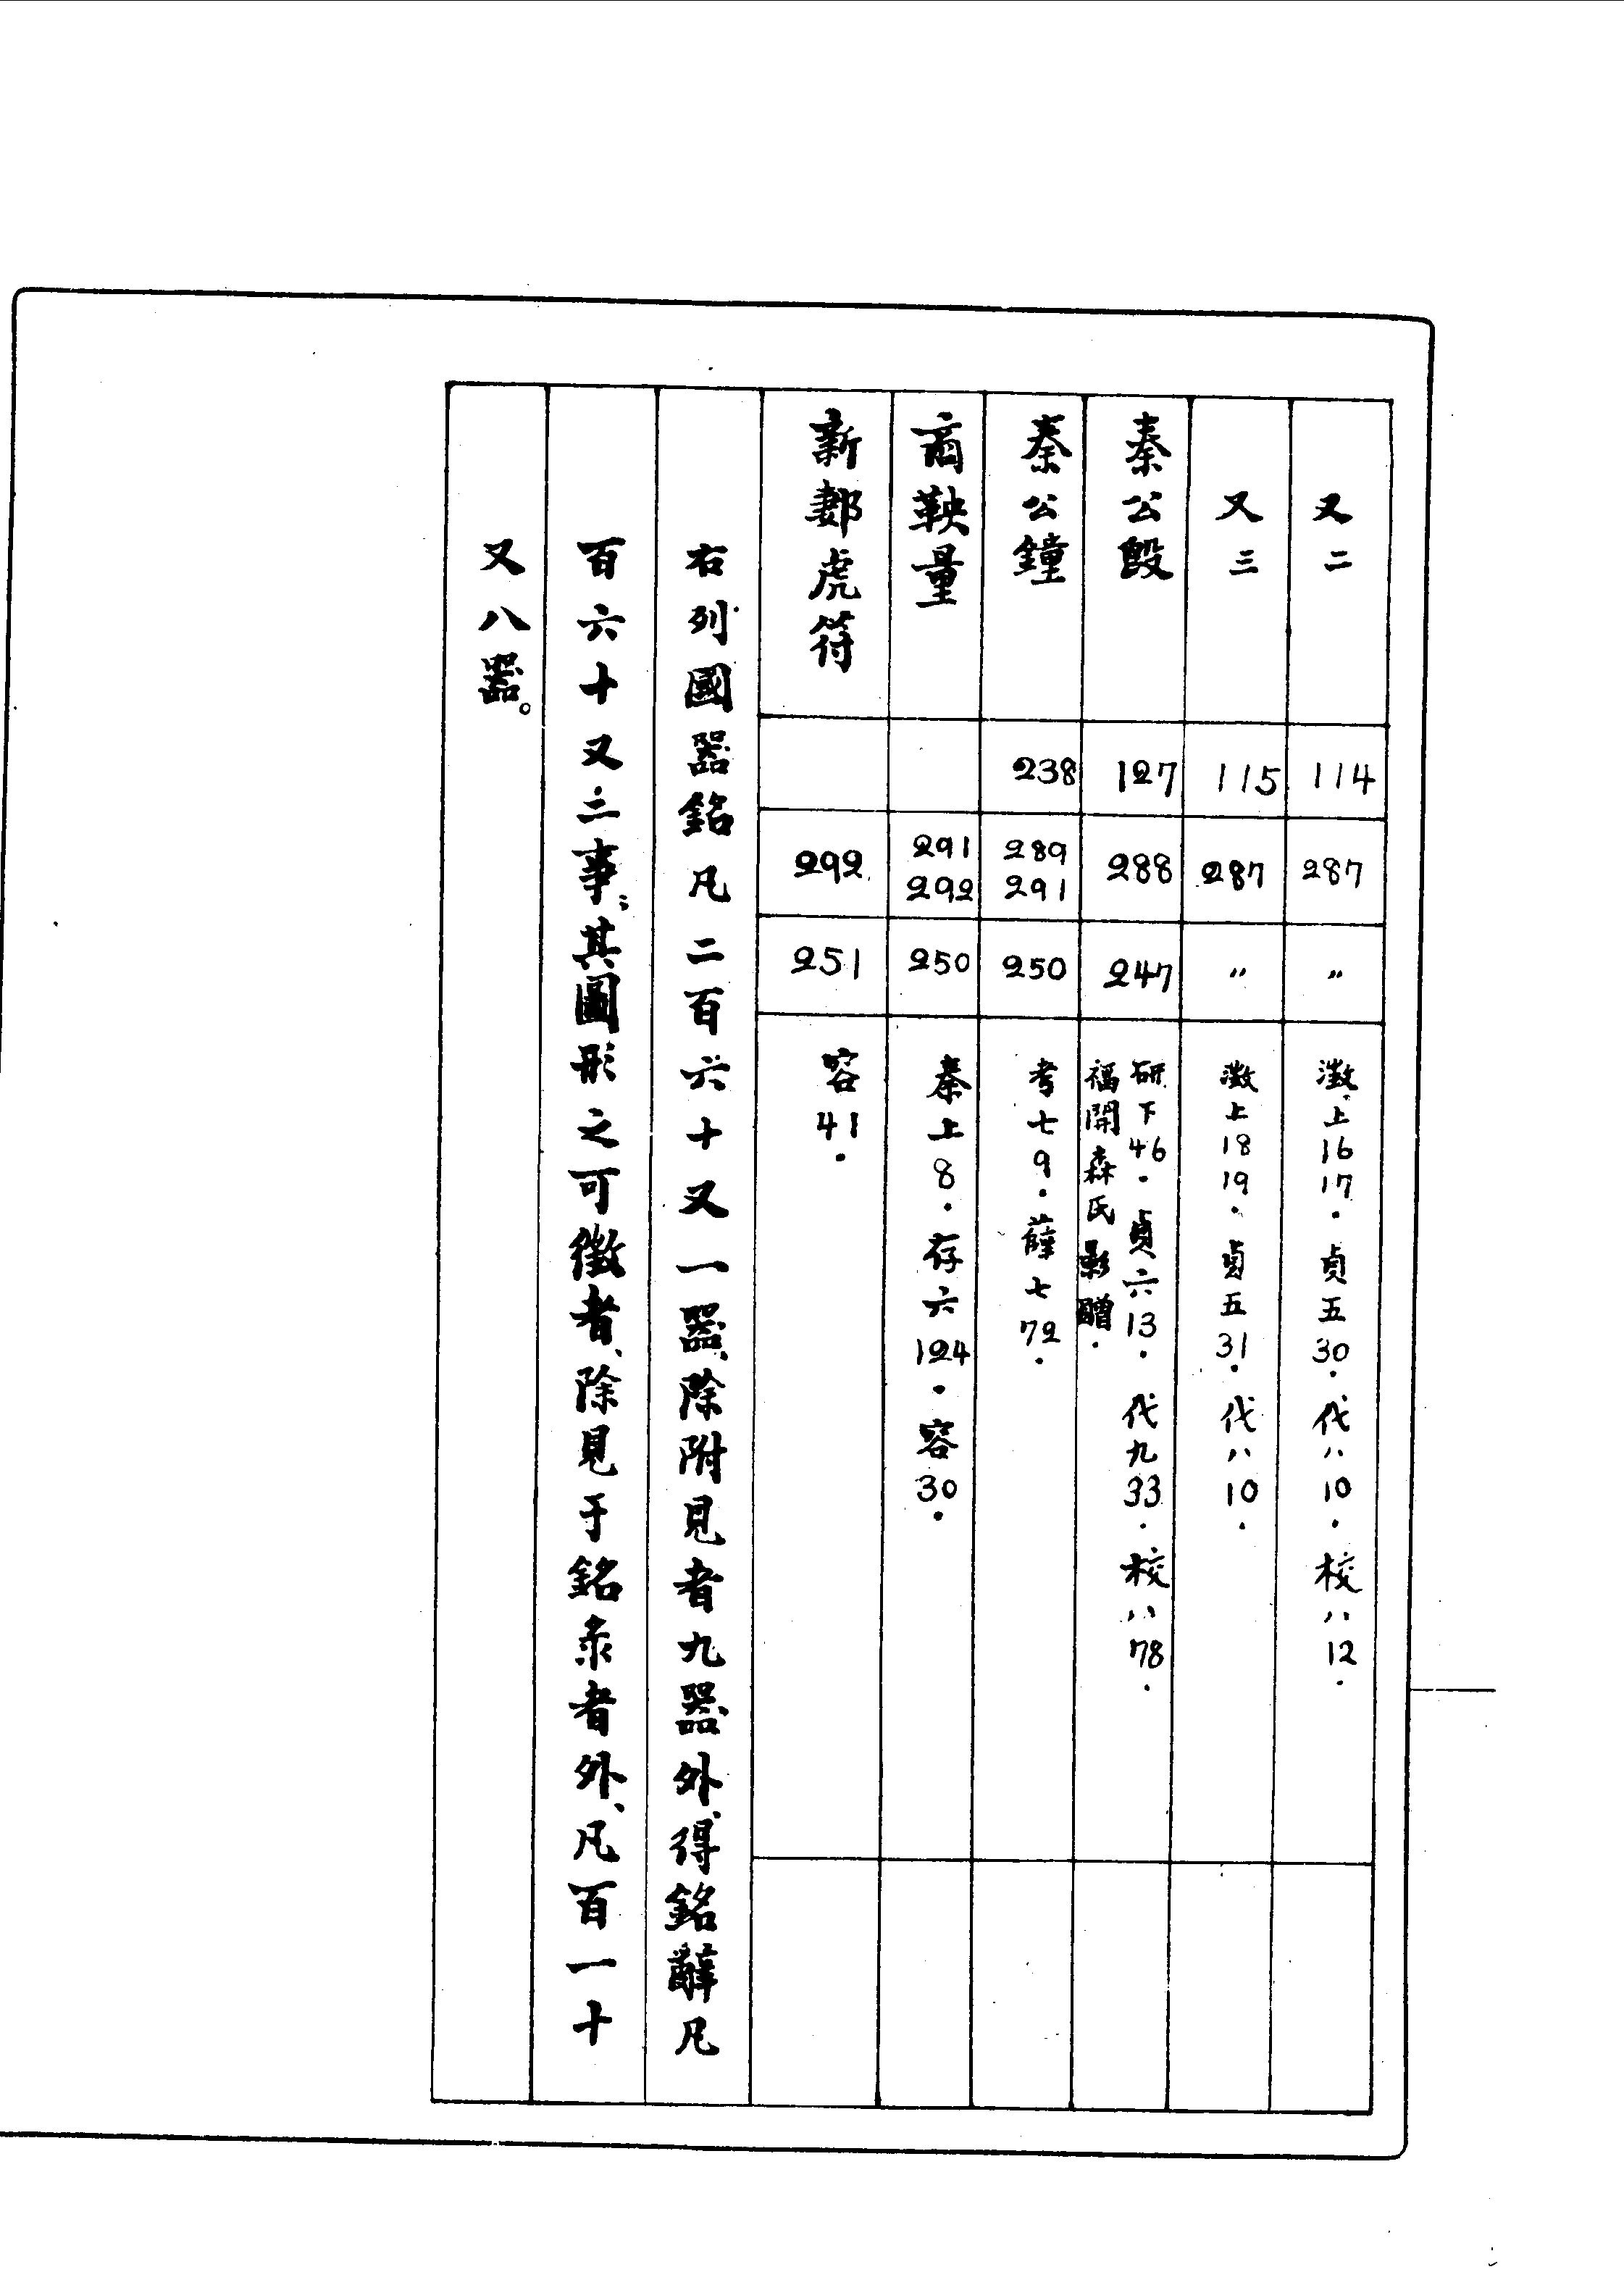 又二 114 287 〃 澂上16 17．貞五30．代八10．校八12．
又三 115 287 〃 澂上18 19．貞五31．代八10．
秦公𣪘 127 288 247 研下46．貞六13．代九33．校八78．
福開森氏影贈．
秦公鐘 238 289 291 250 考七9．薛七72．
商鞅量 291 292 250 秦上8．存六124．容30．
新郪虎符 292 251 容41．
右列國器銘凡二百六十又一器、除附見者九器外、得銘辭凡
百六十又二事；其圖形之可徵者、除見于銘彔者外、凡百一十
又八器。